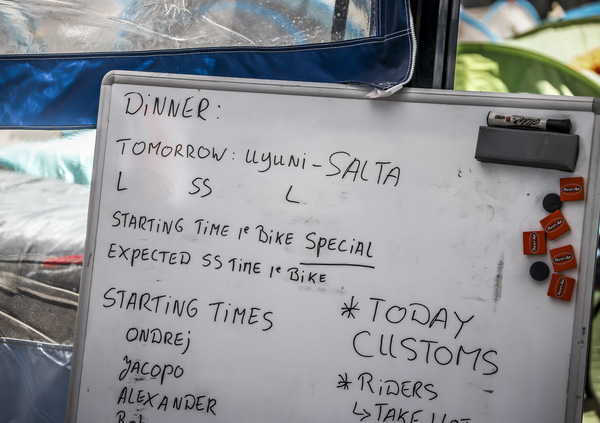 DINNER:
TOMORROW: UYUNI-SALTA
L SS L
STARTING TIME 1e BIKE SPECIAL
EXPECTED SS TIME 1e BIKE
STARTING TIMES
ONDREJ
JACOPO
ALEXANDER
* TODAY
CUSTOMS
* RIDERS
↳ TAKE